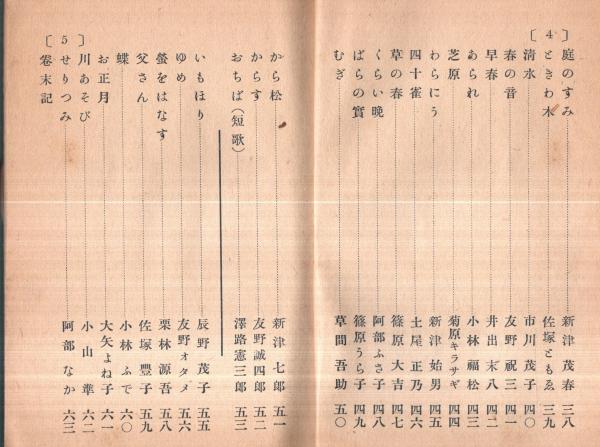 庭のすみ 新津茂春 三八
〔4〕ときわ木 佐塚ともゑ 三九
清水 市川茂子 四〇
春の音 友野祝三 四一
早春 井出末八 四二
あられ 小林福松 四三
芝原 菊原キラサギ 四四
わらにう 新津始男 四五
四十雀 土屋正乃 四六
草の春 篠原大吉 四七
くらい晩 阿部ふさ子 四八
ばらの實 篠原うら子 四九
むぎ 草間吾助 五〇
から松 新津七郎 五一
からす 友野誠四郎 五二
おちば(短歌) 澤路憲三郎 五三
いもほり 辰野茂子 五五
ゆめ 友野ォタメ 五六
螢をはなす 栗林源吾 五八
父さん 佐塚豐子 五九
蝶 小林ふで 六〇
お正月 大矢よね子 六一
川あそび 小山準 六二
〔5〕せりつみ 阿部なか 六三
卷末記